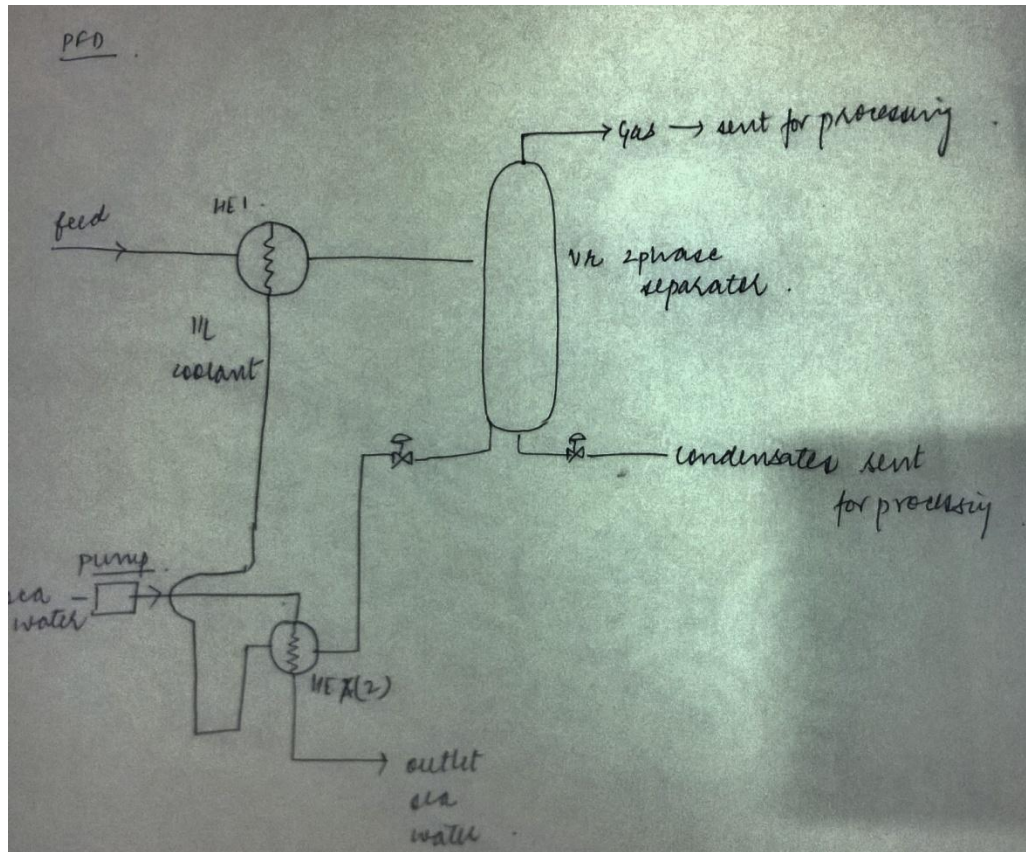 PFD.
Gas → sent for processing.
HE1.
feed
Vr 2phase
separator.
coolant
condensates sent
for processing
pump.
sea
water
HE (2)
outlet
sea
water.